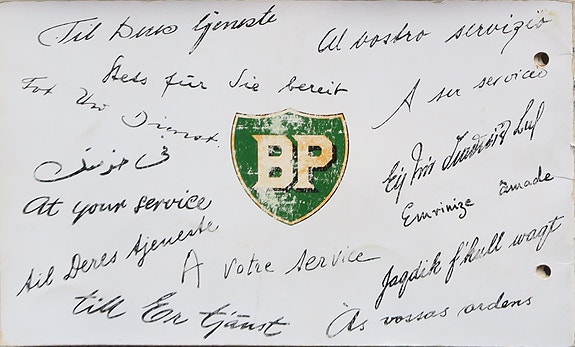 Til Deres tjeneste
Al vostro servizio
Stets für Sie bereit
A su servicio
Tot Uw Dienst
في خدمتك
BP
At your service
Emrinize amade
Til Deres tjeneste
A votre service
Jaqdik f'kull waqt
till Er tjänst
Às vossas ordens